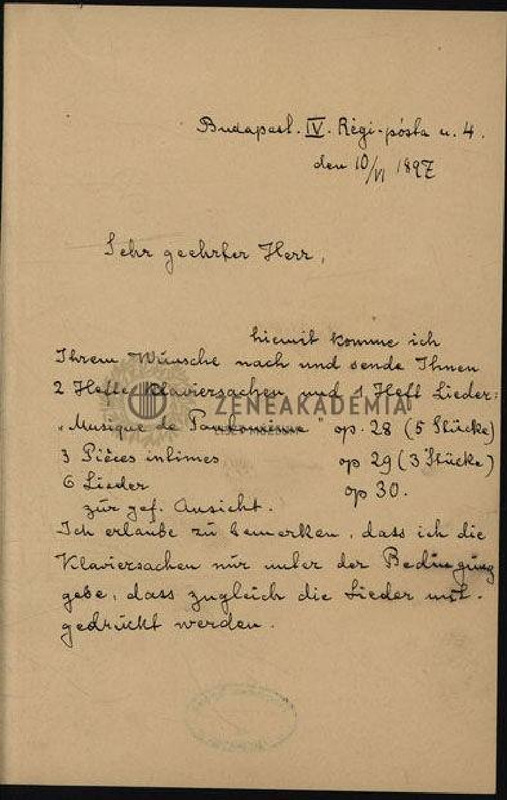 Budapest. IV. Régi-pósta u. 4.
den 10/VI 1897
Sehr geehrter Herr,
hiemit komme ich
Ihrem Wunsche nach und sende Ihnen
2 Hefte Klaviersachen und 1 Heft Lieder:
ZENEAKADEMIA
LISZT MÚZEUM
„Musique de Pantomime" op. 28 (5 Stücke)
3 Pièces intimes op 29 (3 Stücke)
6 Lieder op 30.
zür gef. Ansicht.
Ich erlaube zu bemerken, dass ich die
Klaviersachen nür unter der Bedingüng
gebe, dass zugleich die Lieder mit-
gedrückt werden.